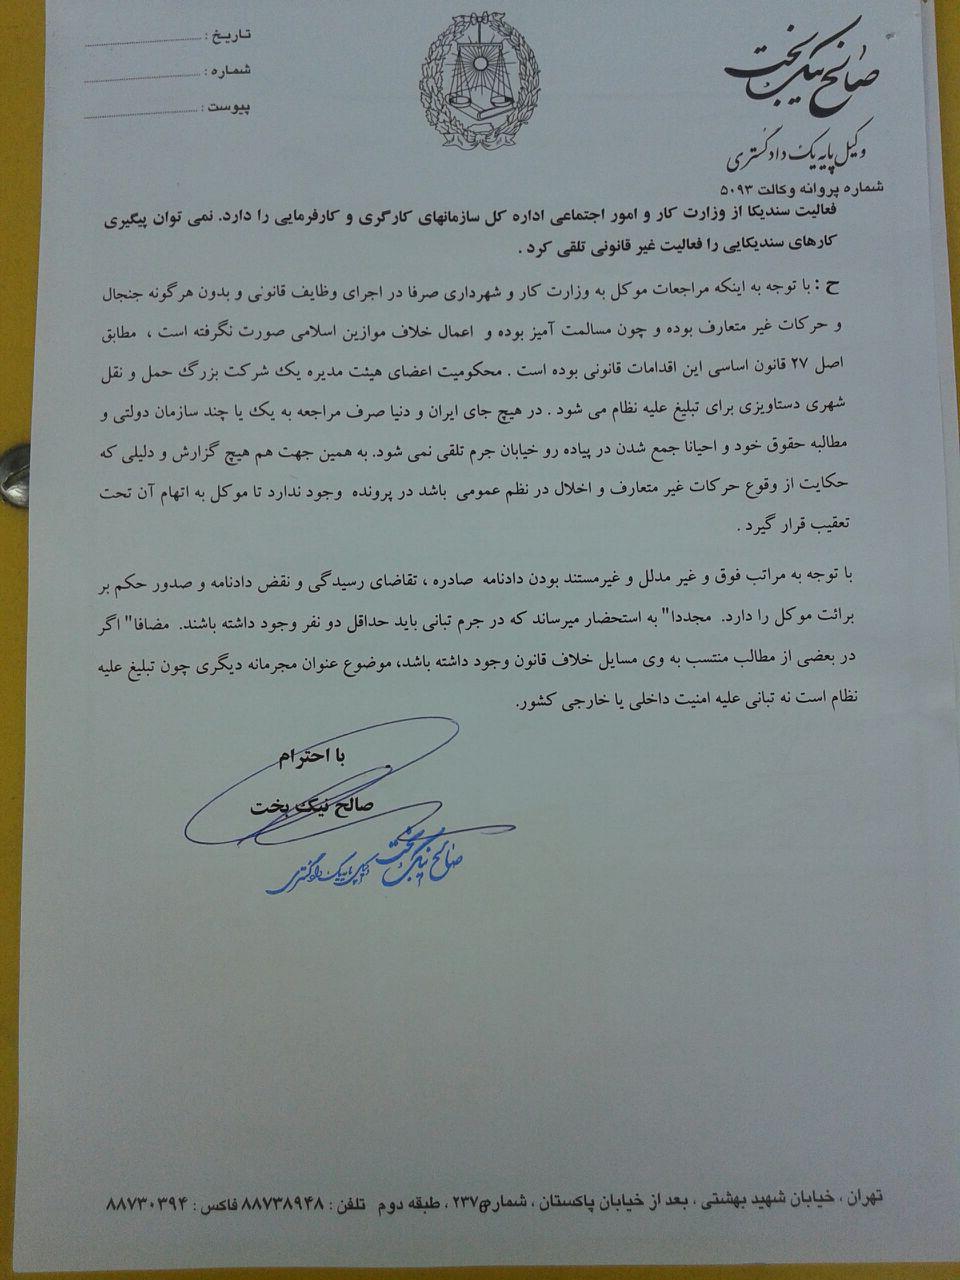 صالح نیک بخت
وکیل پایه یک دادگستری
شماره پروانه وکالت ۵۰۹۳
تاریخ :
شماره :
پیوست :
فعالیت سندیکا از وزارت کار و امور اجتماعی اداره کل سازمانهای کارگری و کارفرمایی را دارد. نمی توان پیگیری
کارهای سندیکایی را فعالیت غیر قانونی تلقی کرد .
ح : با توجه به اینکه مراجعات موکل به وزارت کار و شهرداری صرفا در اجرای وظایف قانونی و بدون هرگونه جنجال
و حرکات غیر متعارف بوده و چون مسالمت آمیز بوده و اعمال خلاف موازین اسلامی صورت نگرفته است ، مطابق
اصل ۲۷ قانون اساسی این اقدامات قانونی بوده است . محکومیت اعضای هیئت مدیره یک شرکت بزرگ حمل و نقل
شهری دستاویزی برای تبلیغ علیه نظام می شود . در هیچ جای ایران و دنیا صرف مراجعه به یک یا چند سازمان دولتی و
مطالبه حقوق خود و احیانا جمع شدن در پیاده رو خیابان جرم تلقی نمی شود. به همین جهت هم هیچ گزارش و دلیلی که
حکایت از وقوع حرکات غیر متعارف و اخلال در نظم عمومی باشد در پرونده وجود ندارد تا موکل به اتهام آن تحت
تعقیب قرار گیرد .
با توجه به مراتب فوق و غیر مدلل و غیرمستند بودن دادنامه صادره ، تقاضای رسیدگی و نقض دادنامه و صدور حکم بر
برائت موکل را دارد. مجددا" به استحضار میرساند که در جرم تبانی باید حداقل دو نفر وجود داشته باشند. مضافا" اگر
در بعضی از مطالب منتسب به وی مسایل خلاف قانون وجود داشته باشد، موضوع عنوان مجرمانه دیگری چون تبلیغ علیه
نظام است نه تبانی علیه امنیت داخلی یا خارجی کشور.
با احترام
صالح نیک بخت
صالح نیک بخت وکیل پایه یک دادگستری
تهران ، خیابان شهید بهشتی ، بعد از خیابان پاکستان ، شماره ۲۳۷ ، طبقه دوم تلفن : ۸۸۷۳۸۹۴۸ فاکس : ۸۸۷۳۰۳۹۴